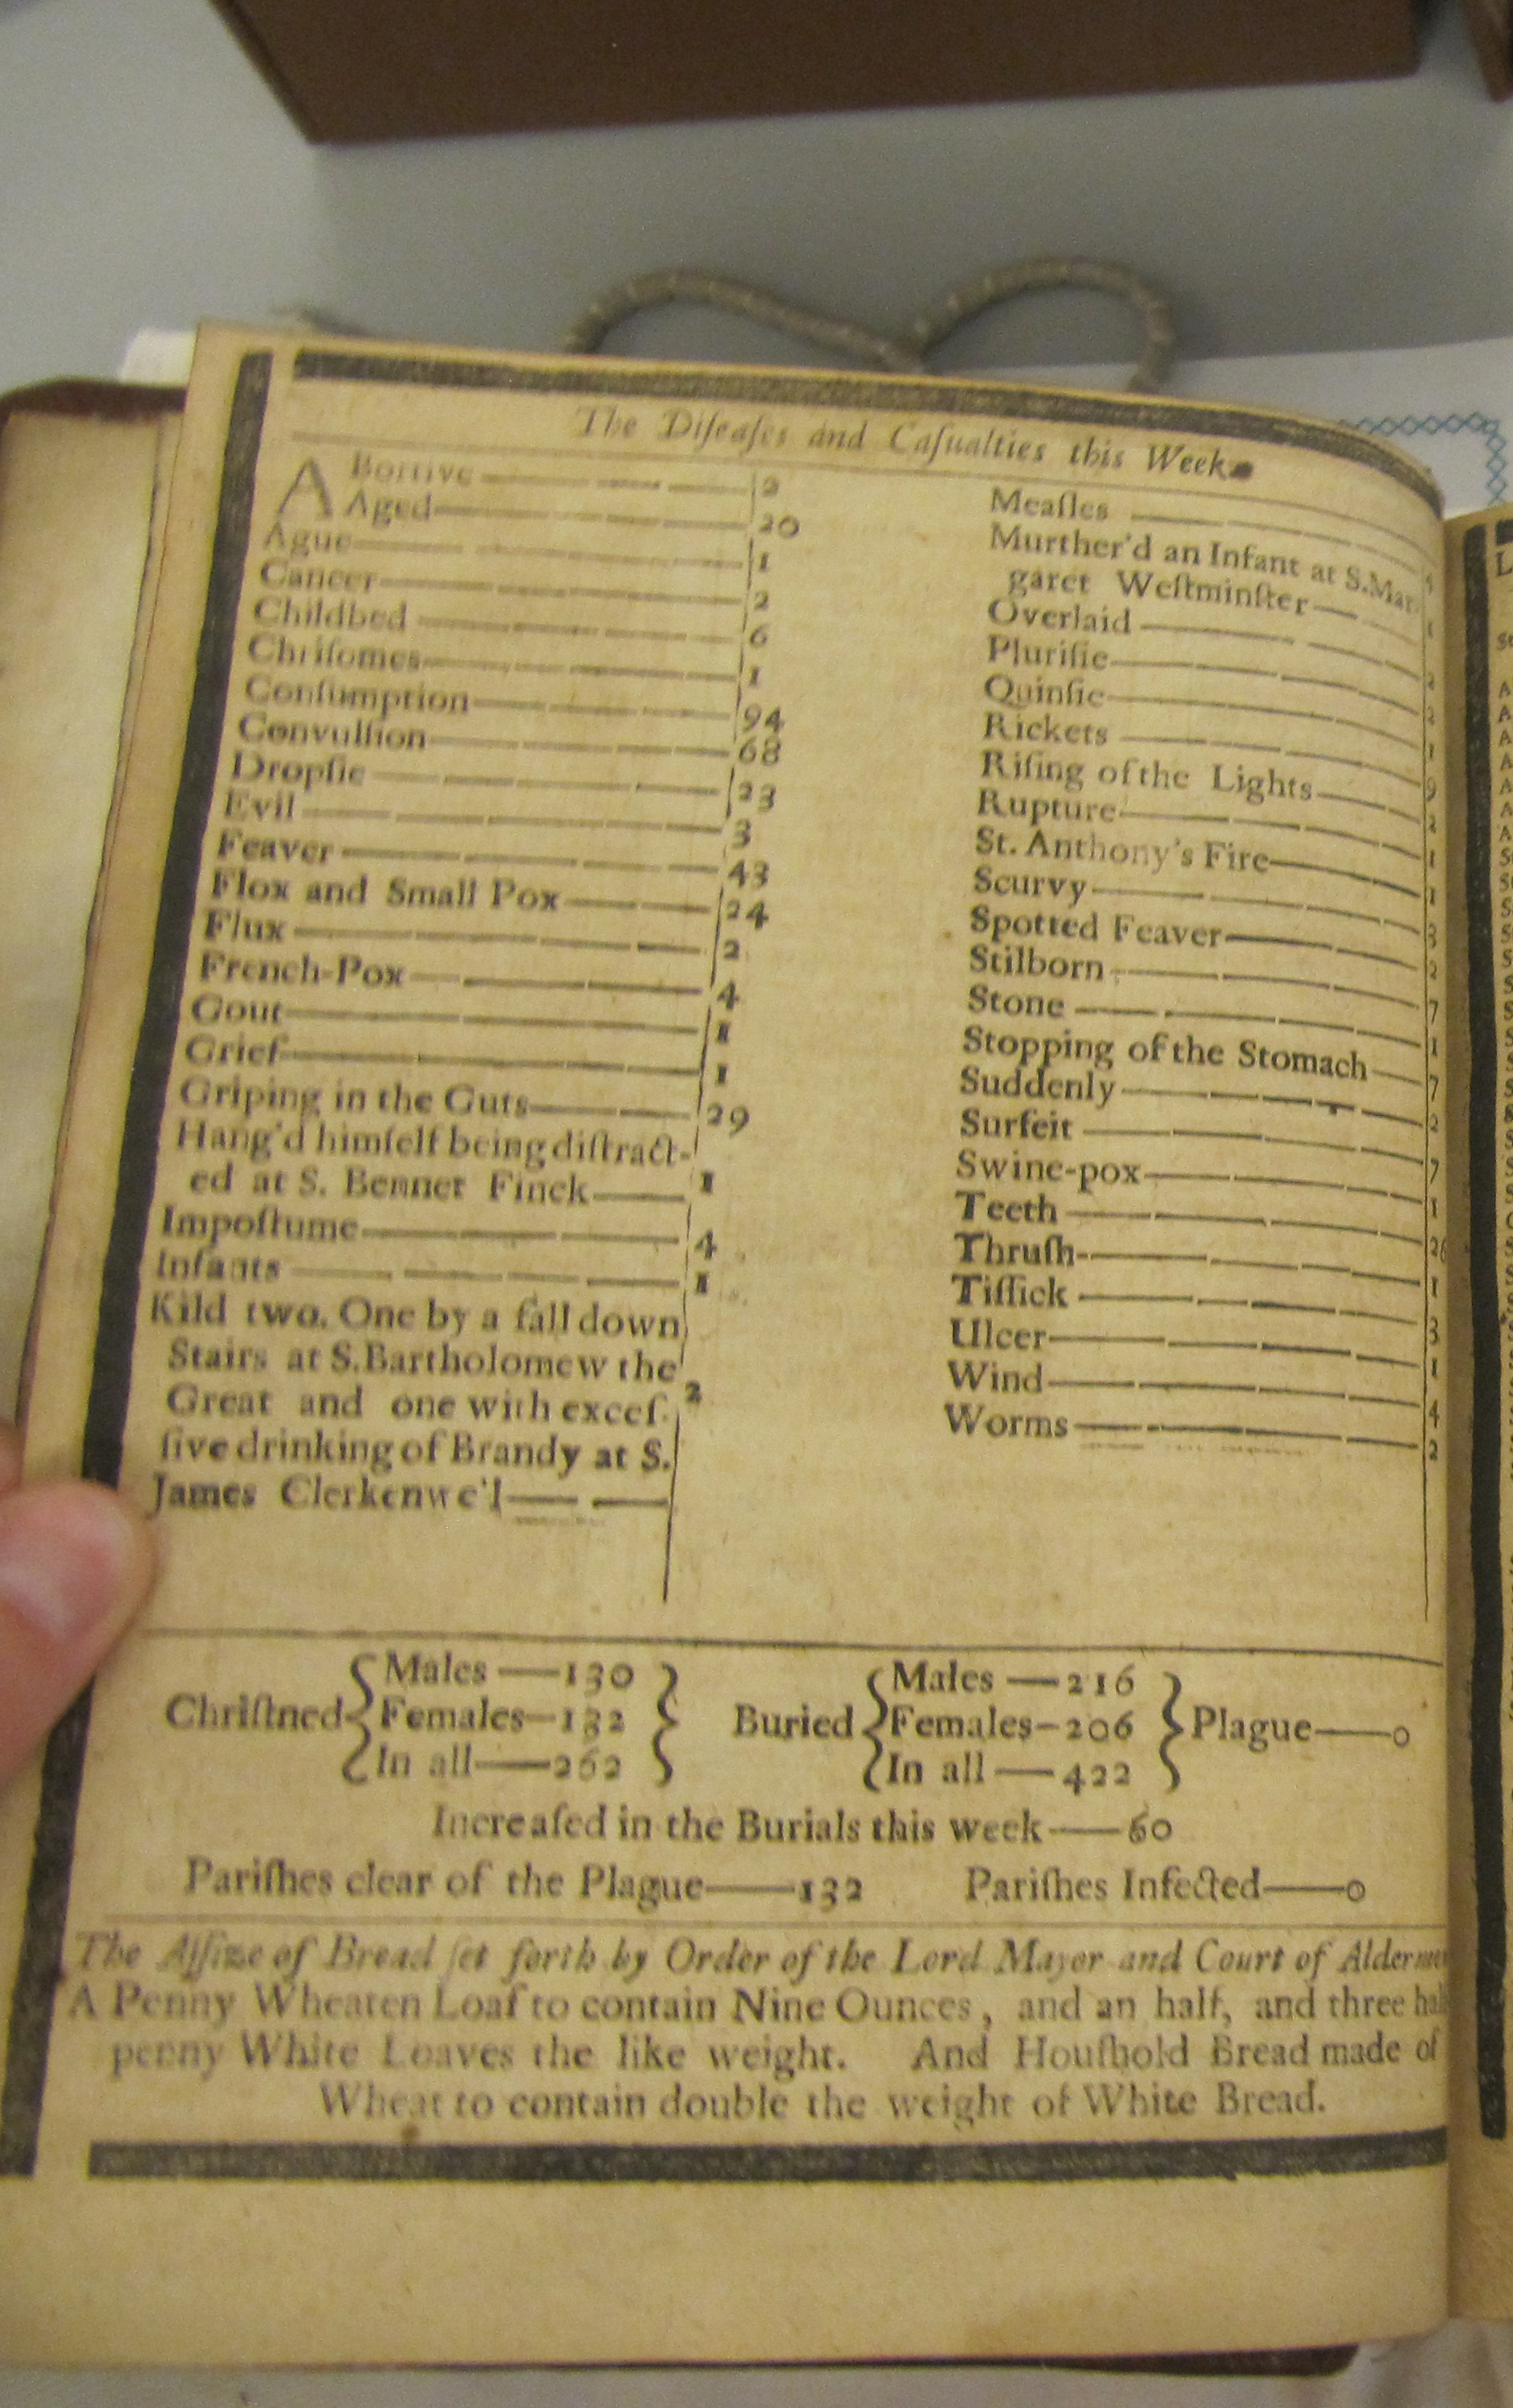 The Diſeaſes and Caſualties this Week.
ABortive 2
Aged 20
Ague 1
Cancer 2
Childbed 6
Chriſomes 1
Conſumption 94
Convulſion 68
Dropſie 23
Evil 3
Feaver 43
Flox and Small Pox 24
Flux 2
French-Pox 4
Gout 1
Grief 1
Griping in the Guts 29
Hang'd himſelf being diſtract-
ed at S. Bennet Finck 1
Impoſtume 4
Infants 1
Kild two. One by a fall down
Stairs at S. Bartholomew the
Great and one with exceſ- 2
ſive drinking of Brandy at S.
James Clerkenwe'l
Meaſles
Murther'd an Infant at S. Mar-
garet Weſtminſter 1
Overlaid 2
Pluriſie 2
Quinſie 1
Rickets 9
Riſing of the Lights 2
Rupture 1
St. Anthony's Fire 1
Scurvy 3
Spotted Feaver 2
Stilborn 7
Stone 1
Stopping of the Stomach 7
Suddenly 2
Surfeit 7
Swine-pox 1
Teeth 26
Thruſh 1
Tiſſick 3
Ulcer 1
Wind 4
Worms 2
Chriſtned { Males — 130 Females — 132 In all — 262 }
Buried { Males — 216 Females — 206 In all — 422 } Plague — 0
Increaſed in the Burials this week — 60
Pariſhes clear of the Plague — 132 Pariſhes Infected — 0
The Aſſize of Bread ſet forth by Order of the Lord Mayor and Court of Aldermen
A Penny Wheaten Loaf to contain Nine Ounces, and an half, and three half
penny White Loaves the like weight. And Houſhold Bread made of
Wheat to contain double the weight of White Bread.